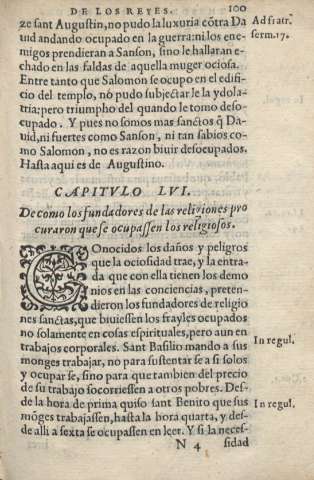 DE LOS REYES. 100
ze sant Augustin, no pudo la luxuria cõtra Da
uid andando ocupado en la guerra: ni los ene-
migos prendieran a Sanson, sino le hallaran e-
chado en las faldas de aquella muger ociosa.
Entre tanto que Salomon se ocupo en el edifi-
cio del templo, no pudo subjectarle la ydola-
tria: pero triumpho del quando le tomo deso-
cupado. Y pues no somos mas sanctos q̃ Da-
uid, ni fuertes como Sanson, ni tan sabios co-
mo Salomon, no es razon biuir desocupados.
Hasta aqui es de Augustino.
Ad fratr.
serm. 17.
CAPITVLO LVI.
De como los fundadores de las religiones pro
curaron que se ocupassen los religiosos.
COnocidos los daños y peligros
que la ociosidad trae, y la entra-
da que con ella tienen los demo
nios en las conciencias, preten-
dieron los fundadores de religio
nes sanctas, que biuiessen los frayles ocupados
no solamente en cosas espirituales, pero aun en
trabajos corporales. Sant Basilio mando a sus
monges trabajar, no para sustentar se a si solos
y ocupar se, sino para que tambien del precio
de su trabajo socorriessen a otros pobres. Des-
de la hora de prima quiso sant Benito que sus
mõges trabajassen, hasta la hora quarta, y des-
de alli a sexta se ocupassen en leer. Y si la neces-
In regul.
In regul.
N 4 sidad